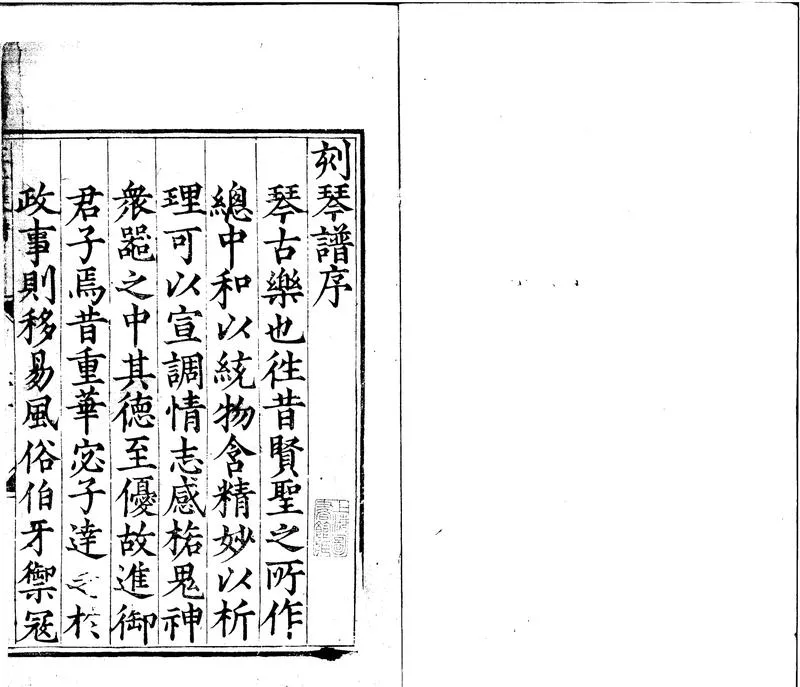 刻琴譜序
琴古樂也往昔賢聖之所作
總中和以統物含精妙以析
理可以宣調情志感格鬼神
衆器之中其德至優故進御
君子焉昔重華宓子達之於
政事則移易風俗伯牙禦寇
上海圖書館藏